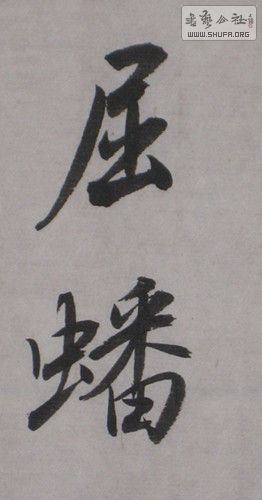 书艺公社
WWW.SHUFA.ORG
屈蟠